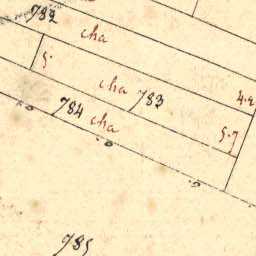 782
cha
5.
cha 783
4.2
784 cha
5.7
785